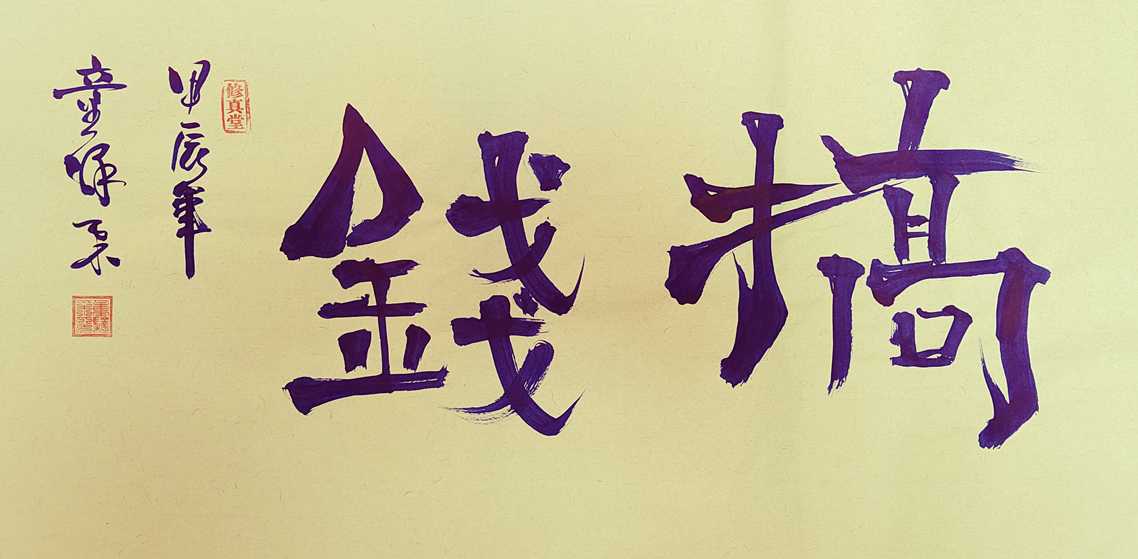 搞錢
修真堂
甲辰年
童